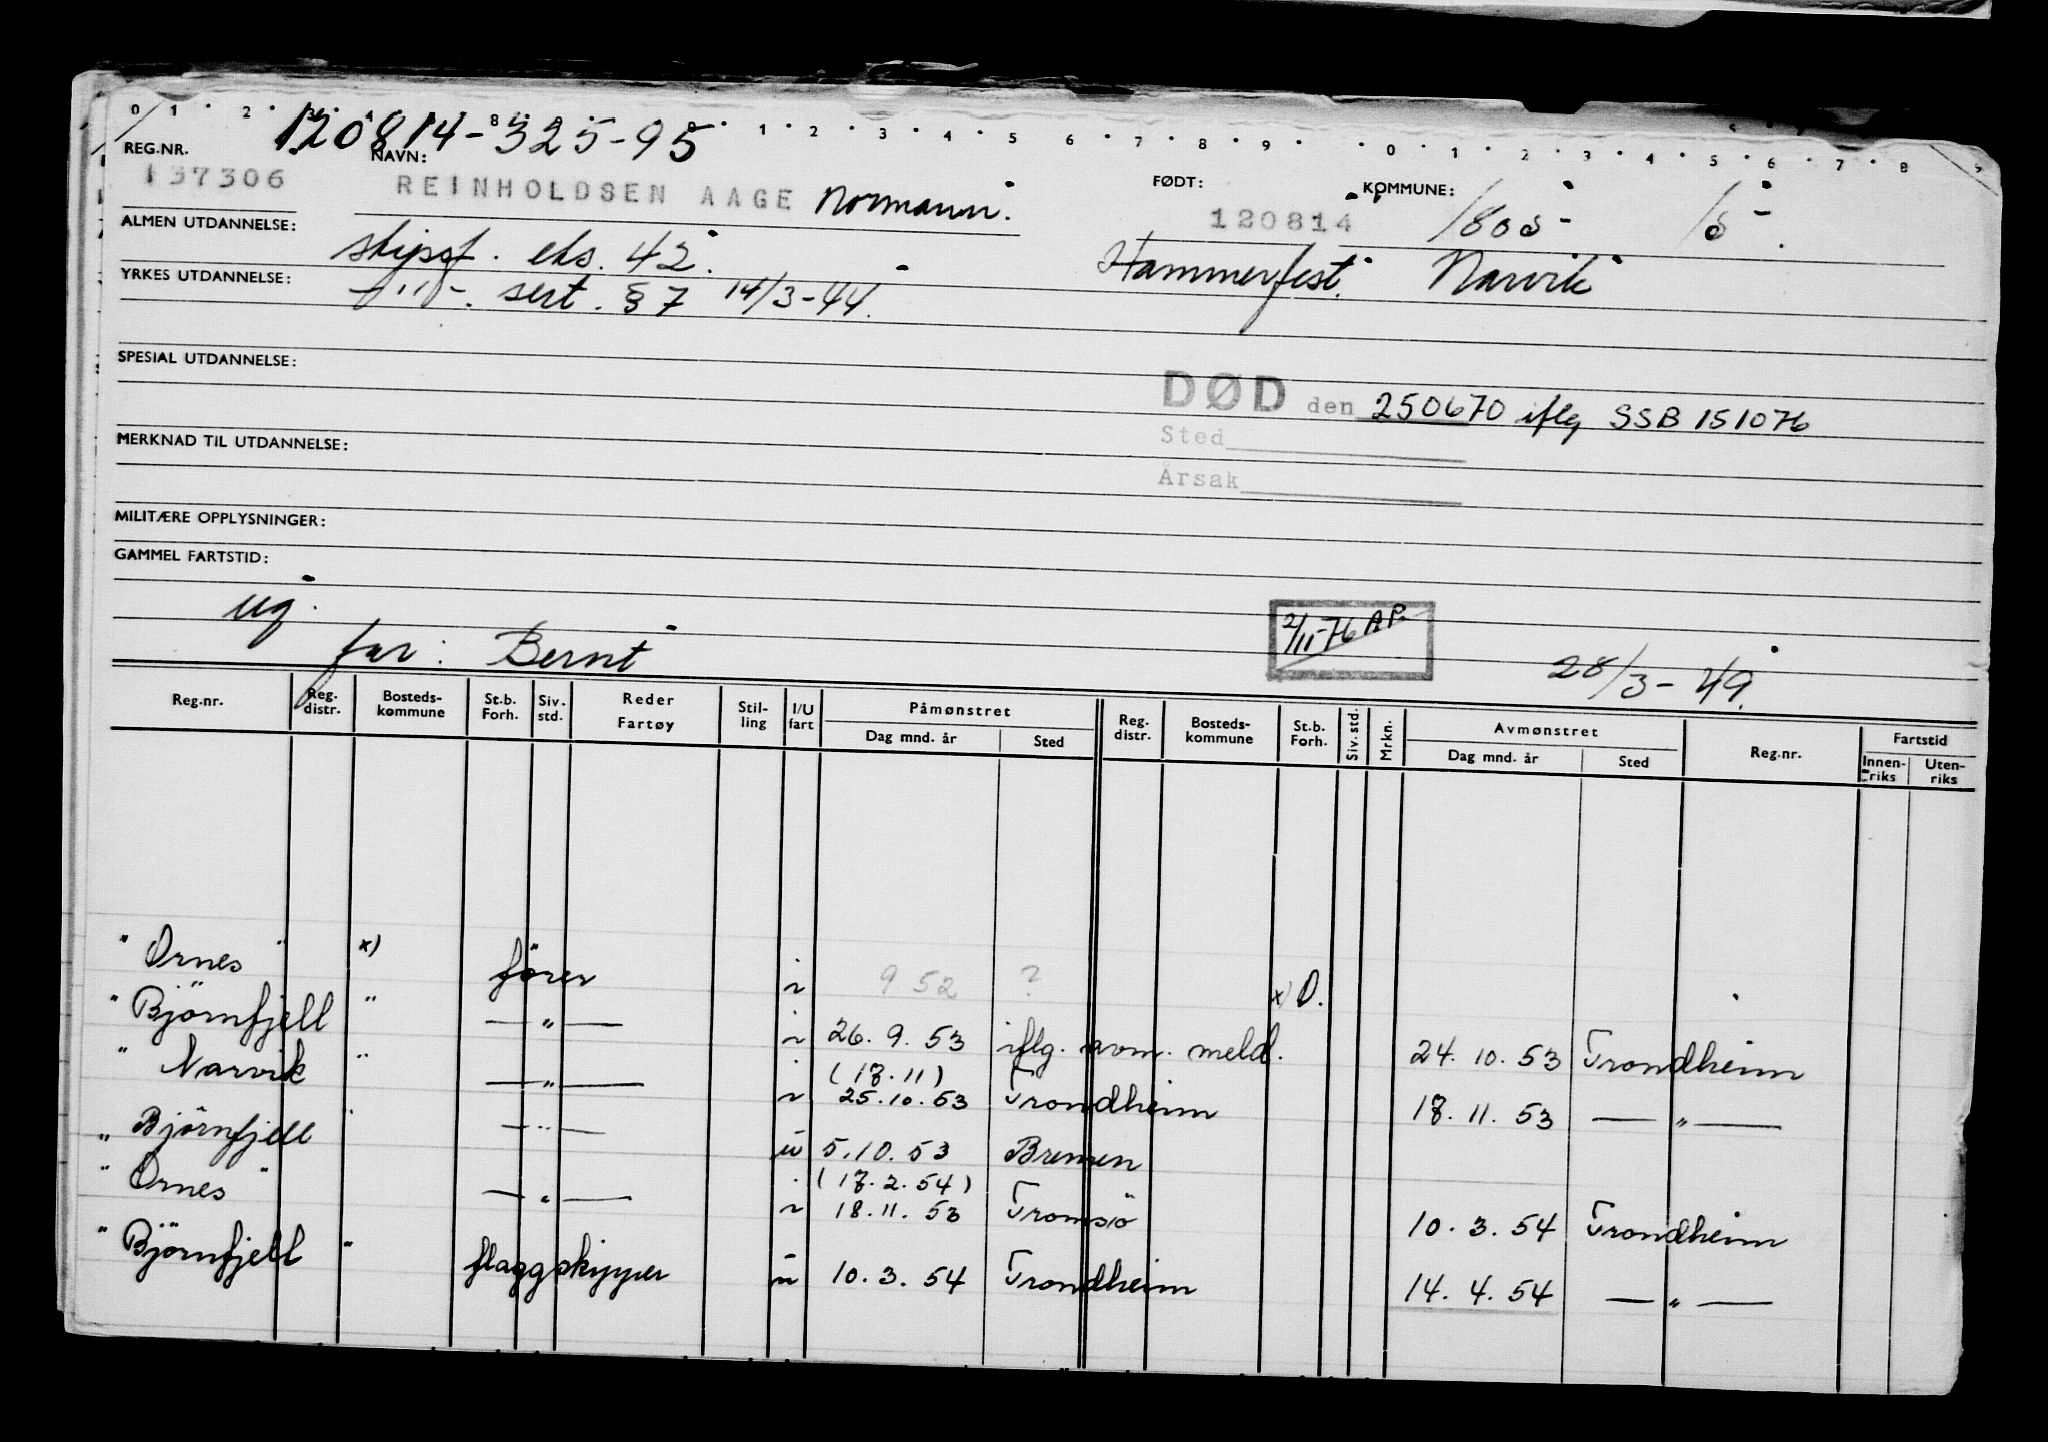 0 1 2 8 9 0 1 2 3 4 5 6 7 8 9 0 1 2 3 4 5 6 7 8
120814-325-95
REG.NR. NAVN: FØDT: KOMMUNE:
137306 REINHOLDSEN AAGE Normann. 120814 1805 15
ALMEN UTDANNELSE: skipsf. eks. 42. Hammerfest. Narvik
YRKES UTDANNELSE: -"-. sert. § 7 14/3-44.
SPESIAL UTDANNELSE:
DØD den 250670 iflg SSB 151076
Sted
MERKNAD TIL UTDANNELSE:
Årsak
MILITÆRE OPPLYSNINGER:
GAMMEL FARTSTID:
ug.
2/11-76 AP
far: Bernt
28/3-49.
Reg.nr. Reg. distr. Bosteds-kommune St.b. Forh. Siv. std. Reder Fartøy Stil-ling I/U fart Påmønstret Dag mnd. år Sted Reg. distr. Bosteds-kommune St.b. Forh. Siv. std. Mrkn. Avmønstret Dag mnd. år Sted Reg.nr. Fartstid Innen-riks Uten-riks
"Ornes" x) fører i 9 52 ? x) O.
"Björnfjell" — " — i 26. 9. 53 iflg. avm. meld. 24. 10. 53 Trondheim
"Narvik" — " — i (18.11) 25.10.53 Trondheim 18. 11. 53 — " —
"Björnfjell" — " — u 5.10.53 Bremen
"Ornes" — " — i (17.2.54) 18.11.53 Tromsö 10. 3. 54 Trondheim
"Björnfjell" flaggskipper u 10. 3. 54 Trondheim 14. 4. 54 — " —